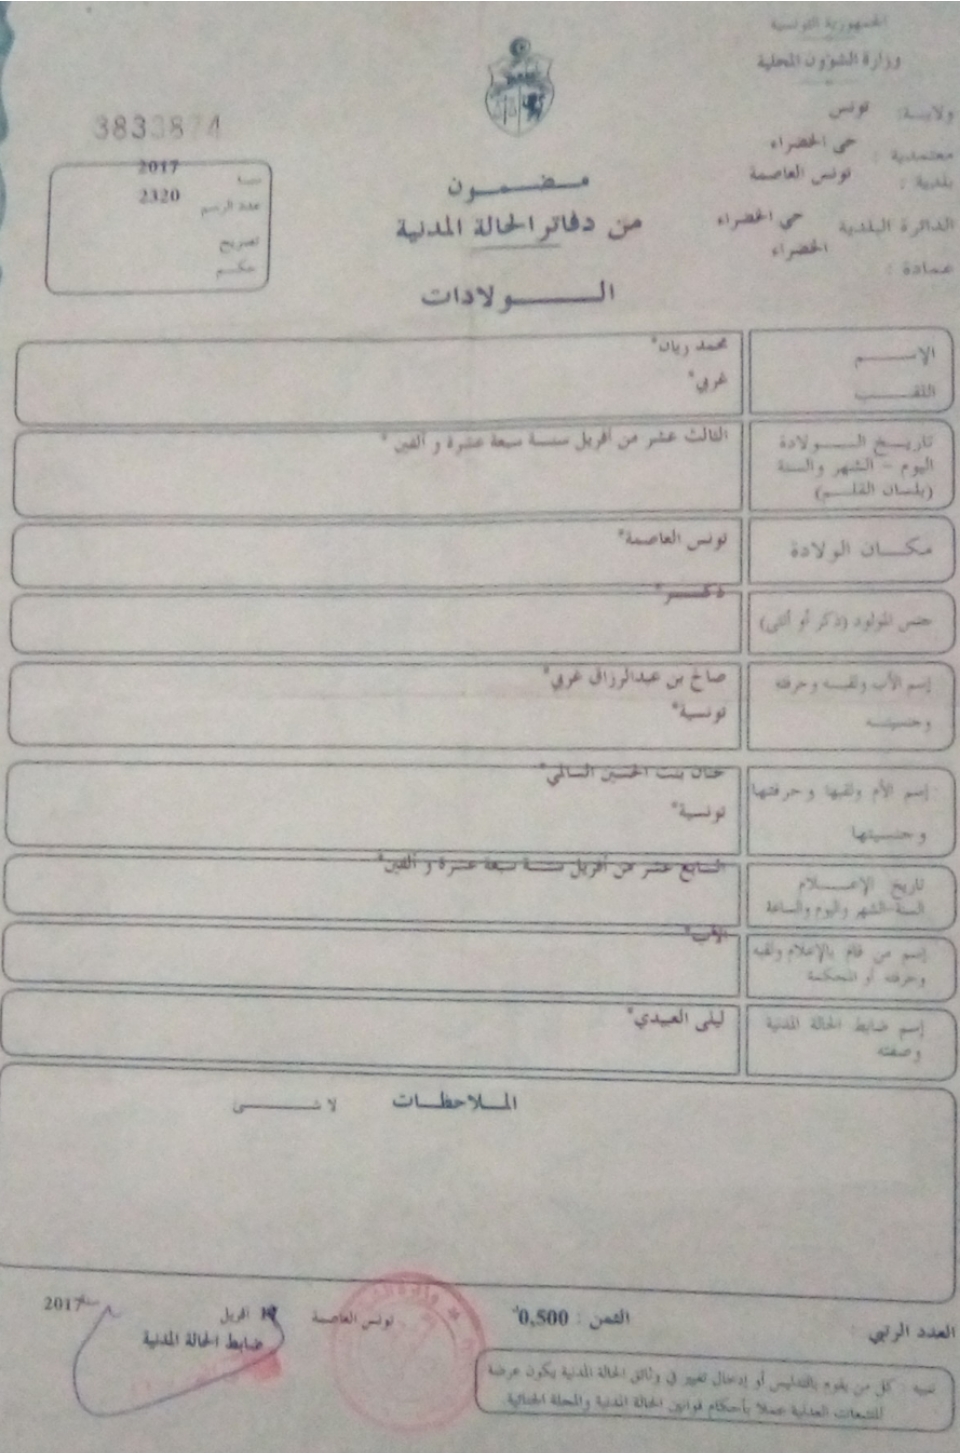 الجمهورية التونسية
وزارة الشؤون المحلية
ولايـة: تونس
معتمدية : حي الخضراء
بلدية : تونس العاصمة
الدائرة البلدية حي الخضراء
عمادة : الخضراء
3833874
سنة 2017
عدد الرسم 2320
تصريح
حكم
مضمون
من دفاتر الحالة المدنية
الولادات
الإسم محمد ريان*
اللقب غربي*
تاريخ الولادة
اليوم - الشهر والسنة
(بلسان القلم)
الثالث عشر من أفريل سنة سبعة عشرة و ألفين *
مكان الولادة تونس العاصمة*
جنس المولود (ذكر أو أنثى) ذكر*
إسم الأب ولقبه وحرفته صالح بن عبدالرزاق غربي*
وجنسيته تونسية*
إسم الأم ولقبها وحرفتها حنان بنت الحسين السالمي*
وجنسيتها تونسية*
تاريخ الإعلام
السنة-الشهر واليوم والساعة
السابع عشر من أفريل سنة سبعة عشرة و ألفين*
إسم من قام بالإعلام ولقبه
وحرفته أو المحكمة
الأب*
إسم ضابط الحالة المدنية
وصفته
ليلى العبيدي*
الملاحظات لا شئ
العدد الرتبي :
الثمن : 0,500
تونس العاصمة أفريل سنة 2017
ضابط الحالة المدنية
تنبيه : كل من يقوم بالتدليس أو إدخال تغيير في وثائق الحالة المدنية يكون عرضة
للتتبعات العدلية عملا بأحكام قوانين الحالة المدنية والمجلة الجنائية